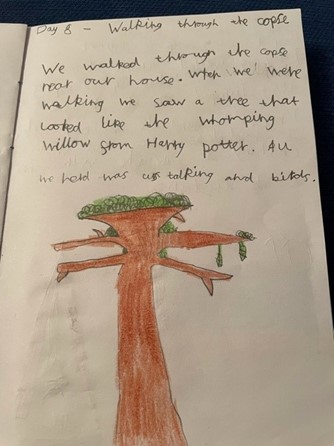 Day 8 - Walking through the copse
We walked through the copse
near our house. When we were
walking we saw a tree that
looked like the whomping
willow from Harry potter. All
we herd was us talking and birds.